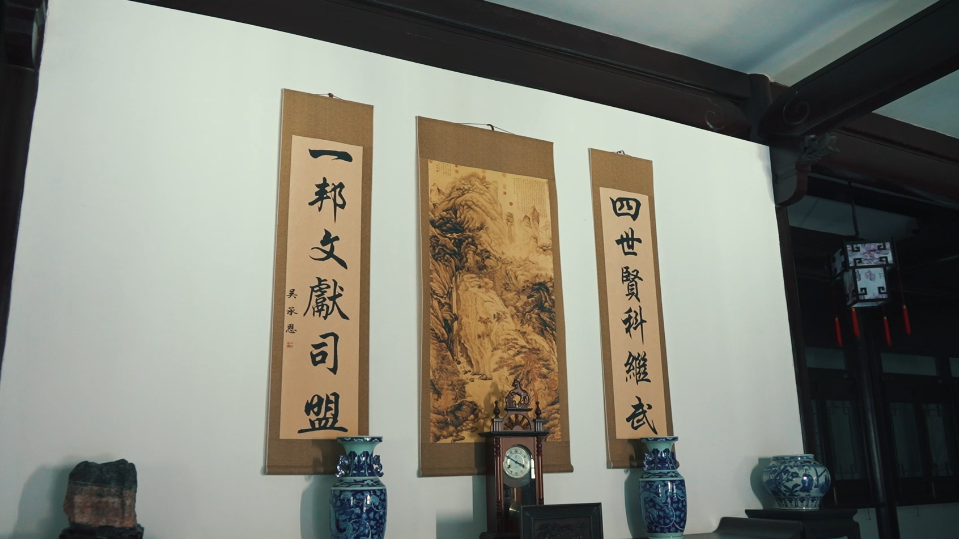 四世賢科繼武
一邦文獻司盟
吴承恩